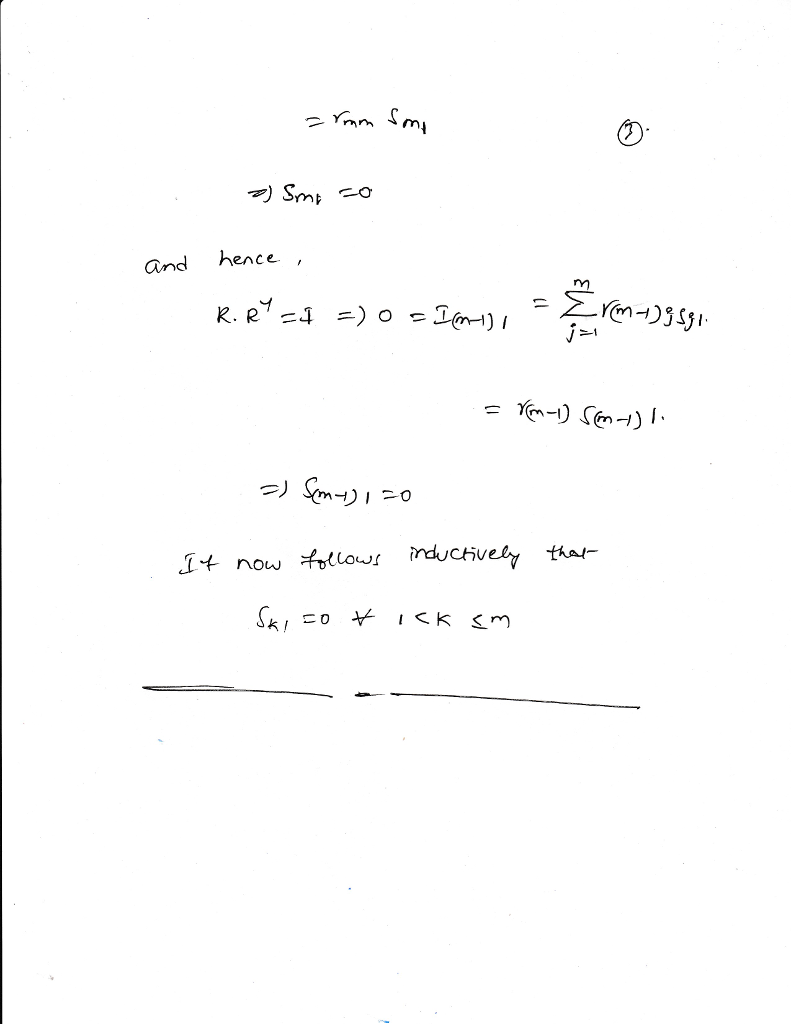 = rmm Sm1
③.
=) Sm1 = 0
and hence,
R. R⁻¹ = I =) 0 = I(m-1)1 = ∑_{j=1}^{m} r(m-1)j Sj1.
= r(m-1) S(m-1)1.
=) S(m-1)1 = 0
It now follows inductively that
Sk1 = 0 ∀ 1 < k ≤ m